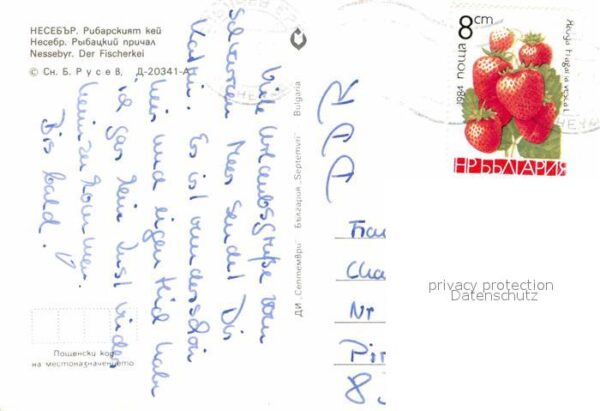 НЕСЕБЪР. Рибарският кей
Несебр. Рыбацкий причал
Nessebyr. Der Fischerkei
© Сн. Б. Русев, Д-20341-А
Viele Urlaubsgrüße vom
Schwarzen Meer sendet Dir
Katrin. Es ist wunderschön
hier und eigentlich habe
ich gar keine Lust wieder
heimzukommen.
Bis bald.
Пощенски код
на местоназначението
ДИ „Септември" България „Septemvri" Bulgaria
DDR
Frau
Cha
Nr
Pir
8
8 cm
поща
1984
НР БЪЛГАРИЯ
privacy protection
Datenschutz